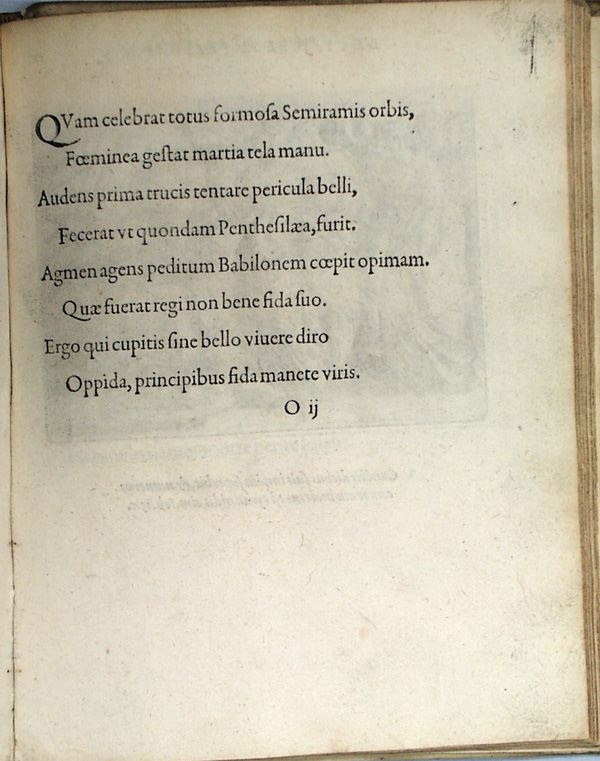 QVam celebrat totus formoſa Semiramis orbis,
Fœminea geſtat martia tela manu.
Audens prima trucis tentare pericula belli,
Fecerat vt quondam Pentheſilæa, furit.
Agmen agens peditum Babilonem cœpit opimam.
Quæ fuerat regi non bene fida ſuo.
Ergo qui cupitis ſine bello viuere diro
Oppida, principibus fida manete viris.
O ij